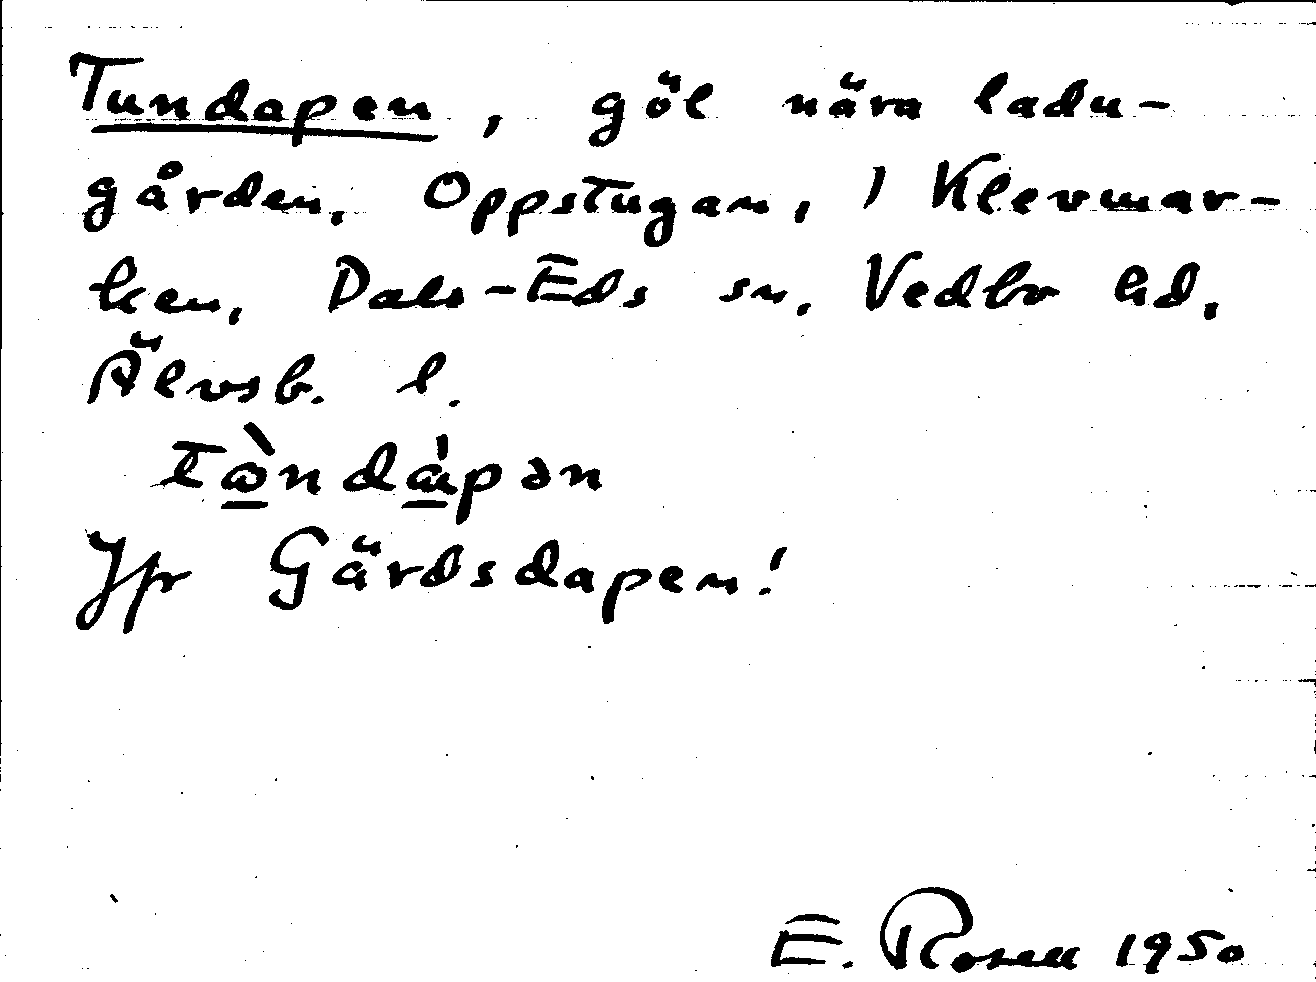 Tundapen, göl nära ladu-
gården, Oppstugan, i Klevmar-
ken, Dals-Eds sn, Vedbo hd,
Älvsb. l.
tɷ̀ndápən
Jfr Gärdsdapen!
E. Rosell 1950